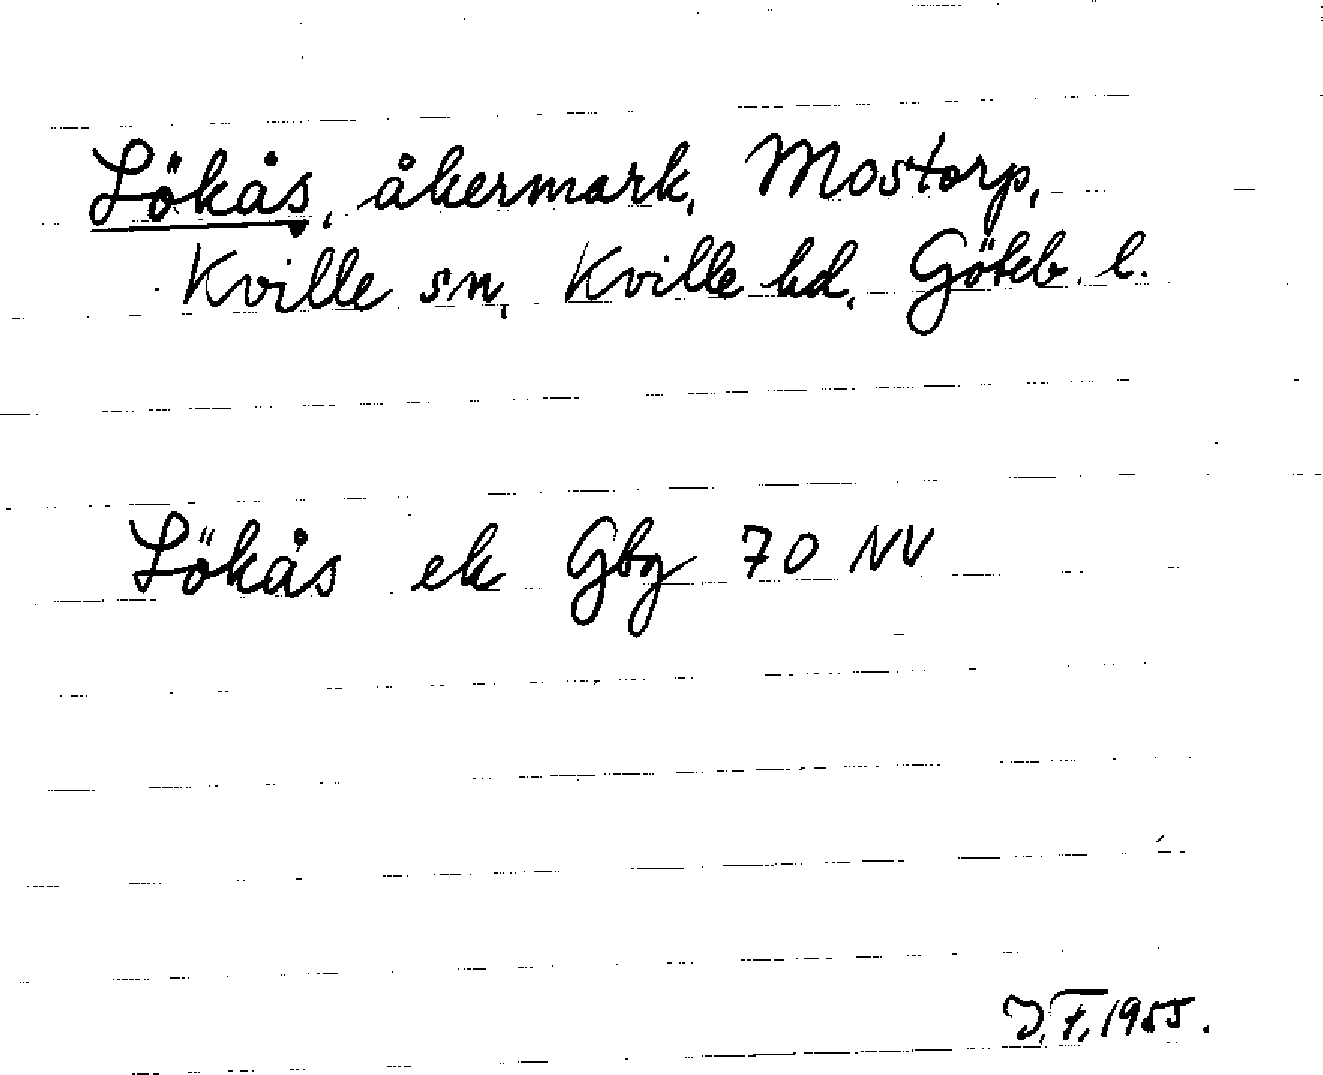 Lökås, åkermark, Mostorp,
Kville sn, Kville hd, Göteb. l.
Lökås ek Gbg 70 NV
J.F. 1955.